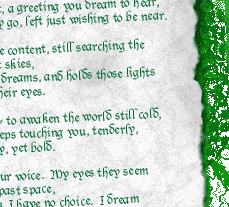 , a greeting you dream to hear,
y go, left just wishing to be near.
e content, still searching the
skies,
dreams, and holds those lights
heir eyes.
to awaken the world still cold,
eps touching you, tenderly,
y, yet hold.
ur voice. My eyes they seem
past space,
I have no choice. I dream